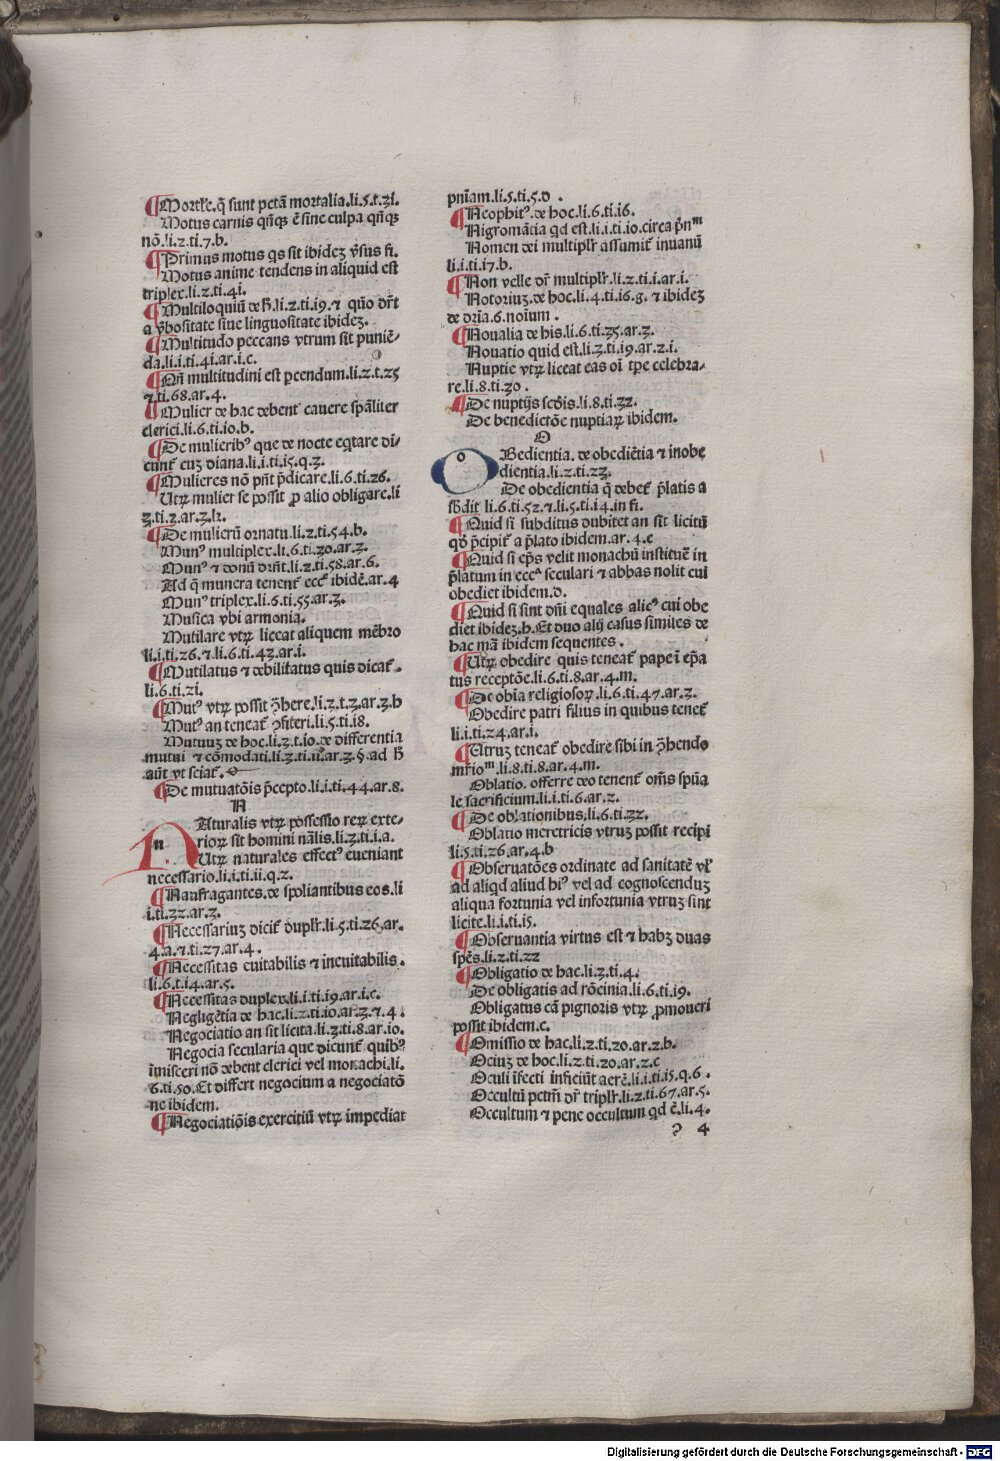 ¶Mortale. q̄ sunt pctā mortalia.li.5.t.31.
Motus carnis qñqꝫ ē sine culpa qñqꝫ
nō.li.2.ti.7.b.
¶Primus motus qs sit ibideꝫ v̓sus fi.
Motus anime tendens in aliquid est
triplex.li.2.ti.41.
¶Multiloquiū de h̄.li.2.ti.19.⁊ qūo dr̄t
a v̓bositate siue linguositate ibideꝫ.
¶Multitudo peccans vtrum sit puniē-
da.li.1.ti.41.ar.1.c.
¶Qñ multitudini est p̱cendum.li.2.t.25
⁊.ti.68.ar.4.
¶Mulier de hac debent cauere spāliter
clerici.li.6.ti.10.b.
¶De mulieribꝰ que de nocte eq̄tare di-
cunt̄ cuꝫ diana.li.1.ti.15.q.3.
¶Mulieres nō pñt p̄dicare.li.6.ti.26.
Utꝝ mulier se possit ꝓ alio obligare.li
3.ti.3.ar.3.h.
¶De mulierū ornatu.li.2.ti.54.b.
Munꝰ multiplex.li.6.ti.30.ar.3.
Munꝰ ⁊ donū drñt.li.2.ti.58.ar.6.
Ad q̄ munera tenent̄ ecc̄ ibidē.ar.4
Munꝰ triplex.li.6.ti.55.ar.3.
Musica vbi armonia.
Mutilare vtꝝ liceat aliquem mēbro
li.1.ti.26.⁊.li.6.ti.43.ar.1.
¶Mutilatus ⁊ debilitatus quis dicat̄.
li.6.ti.21.
¶Mutꝰ vtꝝ possit ꝯ̄here.li.3.t.3.ar.3.b
Mutꝰ an teneat̄ ꝯfiteri.li.5.ti.18.
Mutuuꝫ de hoc.li.3.t.10.de differentia
mutui ⁊ cōmodati.li.3.ti.11.ar.3.§.ad h̄
aūt vt sciat̄.
¶De mutuatōis p̄cepto.li.1.ti.44.ar.8.
N
n Aturalis vtꝝ possessio reꝝ exte-
rioꝝ sit homini nālis.li.3.ti.1.a.
Utꝝ naturales effectꝰ eueniant
necessario.li.1.ti.11.q.2.
¶Naufragantes.de spoliantibus eos.li
1.ti.32.ar.3.
¶Necessariuꝫ dicit̄ dupl̄r.li.5.ti.26.ar.
4.a.⁊.ti.27.ar.4.
¶Necessitas euitabilis ⁊ ineuitabilis.
li.6.t.14.ar.5.
¶Necessitas duplex.li.1.ti.19.ar.1.c.
Negligētia de hac.li.2.ti.10.ar.3.⁊.4.
Negociatio an sit licita.li.3.ti.8.ar.10.
Negocia secularia que dicunt̄ quibꝰ
īmisceri nō debent clerici vel monachi.li.
6.ti.50.Et differt negocium a negociatō
ne ibidem.
¶Negociatiōis exercitiū vtꝝ impediat
pn̄iam.li.5.ti.5.d .
¶Neophitꝰ.de hoc.li.6.ti.16.
Nigromātia qd est.li.1.ti.10.circa p̄nᵐ
Nomen dei multipl̄r assumit̄ inuanū
li.1.ti.17.b.
¶Non velle dr̄ multipl̄r.li.2.ti.1.ar.1.
Notoriuꝫ.de hoc.li.4.ti.16.g. ⁊ ibideꝫ
de dr̄ia.6.noīum .
¶Noualia de his.li.6.ti.35.ar.3.
Nouatio quid est.li.3.ti.19.ar.2.1.
Nuptie vtꝝ liceat eas oī tp̄e celebra-
re.li.8.ti.30 .
¶De nuptijs scd̄is.li.8.ti.32.
De benedictōe nuptiaꝝ ibidem.
O
o Bedientia. de obediētia ⁊ inobe
dientia.li.2.ti.23.
De obedientia q̄ debet̄ p̄latis a
sb̄dit̄ li.6.ti.52.⁊.li.5.ti.14.in fi.
¶Quid si subditus dubitet an sit licitū
qd̓ p̄cipit̄ a p̄lato ibidem.ar.4.c
¶Quid si ep̄s velit monachū instituē in
p̄latum in eccᵃ seculari ⁊ abbas nolit cui
obediet ibidem.d.
¶Quid si sint dn̄i equales alicꝰ cui obe
diet ibideꝫ.h.Et duo alij casus similes de
hac mā ibidem sequentes .
¶Utꝝ obedire quis teneat̄ pape ī ep̄a
tus receptōe.li.6.ti.8.ar.4.m.
¶De obīa religiosoꝝ.li.6.ti.47.ar.3.
Obedire patri filius in quibus tenet̄
li.1.ti.24.ar.1.
¶Utruꝫ teneat̄ obedire sibi in ꝯ̄hendo
mr̄ioᵐ.li.8.ti.8.ar.4.m.
Oblatio. offerre deo tenent̄ om̄s spūa
le sacrificium.li.1.ti.6.ar.2.
¶De oblationibus.li.6.ti.32.
Oblatio meretricis vtruꝫ possit recipi
li.5.ti.26.ar.4.b
¶Obseruatōes ordinate ad sanitatē vl̓
ad aliqd aliud hīꝰ vel ad cognoscenduꝫ
aliqua fortunia vel infortunia vtruꝫ sint
licite.li.1.ti.15.
¶Obseruantia virtus est ⁊ habꝫ duas
spēs.li.2.ti.22
¶Obligatio de hac.li.3.ti.4.
De obligatis ad rōcinia.li.6.ti.19.
Obligatus cā pignoris vtꝝ ꝓmoueri
possit ibidem.c.
¶Omissio de hac.li.2.ti.20.ar.2.b.
Ociuꝫ de hoc.li.2.ti.20.ar.2.c
Oculi īfecti inficiūt aerē.li.1.ti.15.q.6.
Occultū pctm̄ dr̄ tripl̄r.li.2.ti.67.ar.5.
Occultum ⁊ pene occultum qd ē.li.4.
ꝯ 4
Digitalisierung gefördert durch die Deutsche Forschungsgemeinschaft - DFG